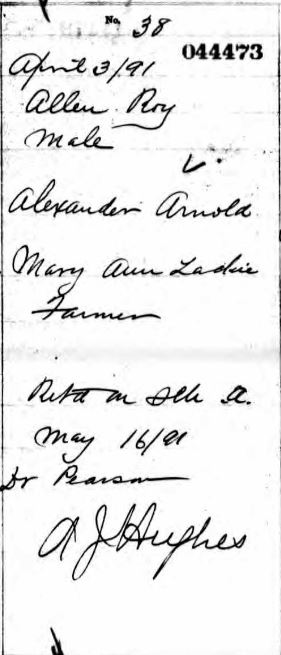 No. 38
044473
April 3/91
Allen Roy
Male
Alexander Arnold
Mary Ann Lackie
Farmer
May 16/91
Dr Pearson
A J Hughes